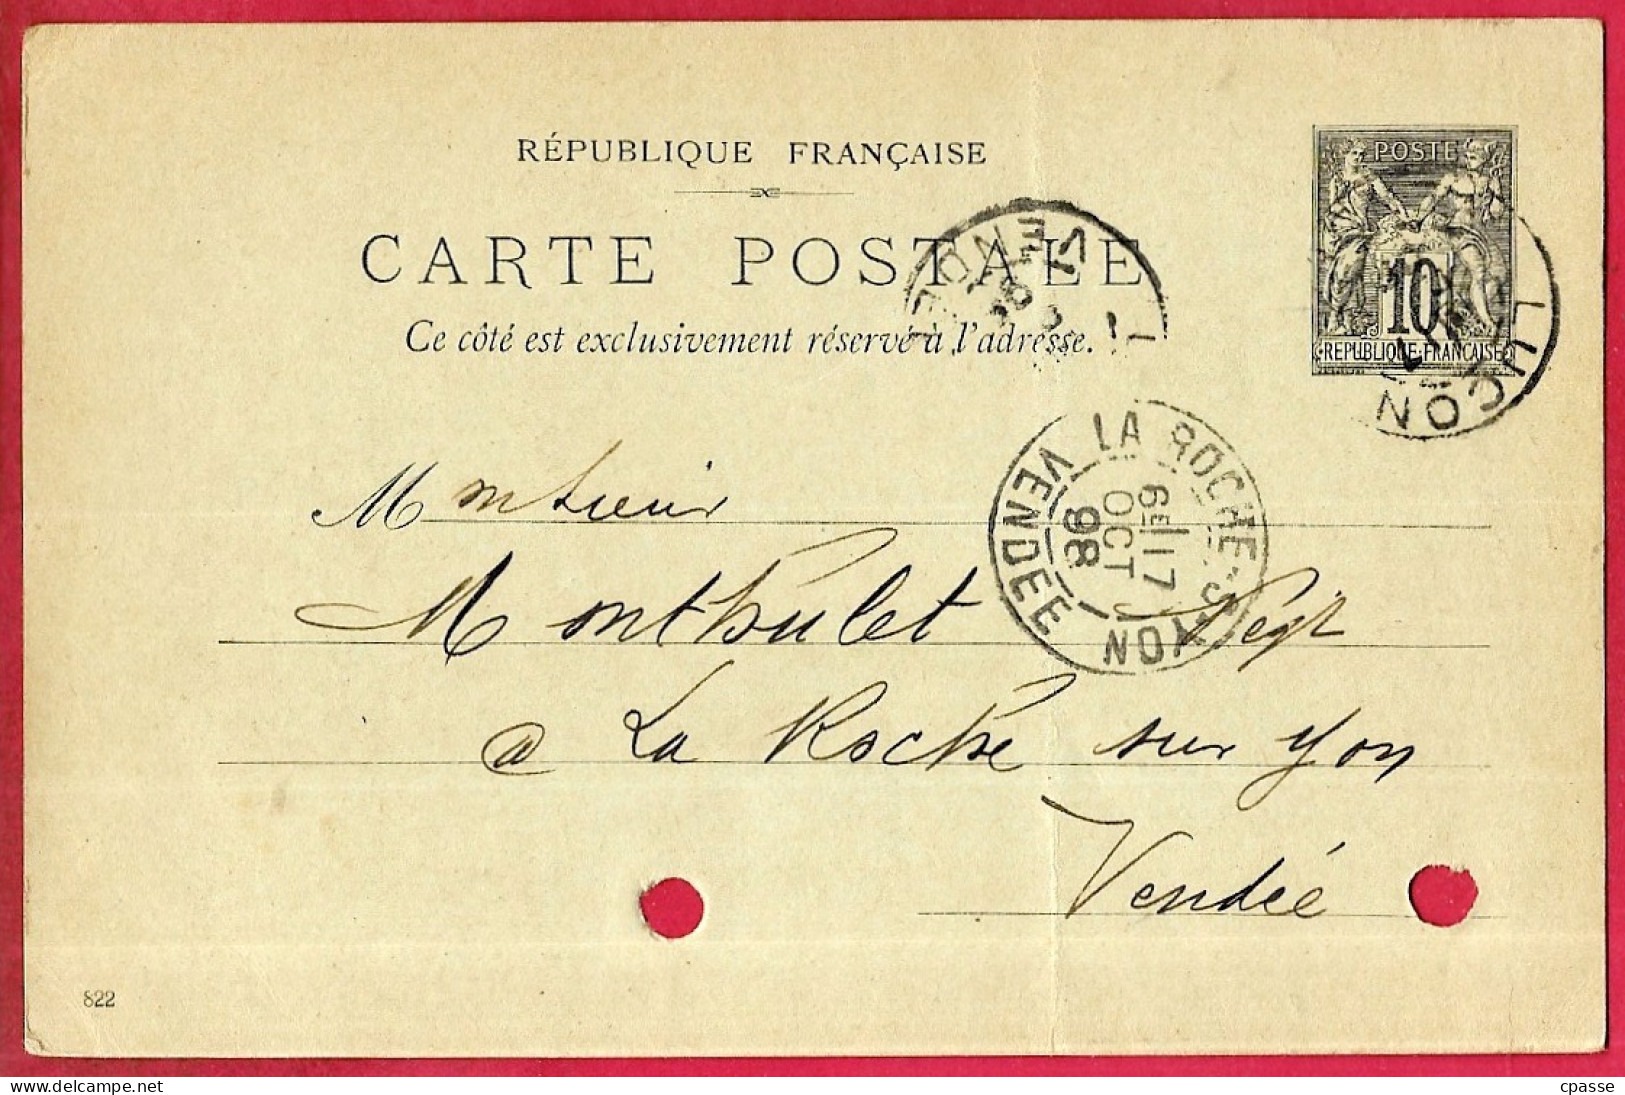 RÉPUBLIQUE FRANÇAISE
CARTE POSTALE
Ce côté est exclusivement réservé à l'adresse.
POSTE
10
REPUBLIQUE FRANÇAISE
LUÇON
VENDEE
LA ROCHE-S-YON
6E 17
OCT
98
VENDEE
Monsieur
Monthulet
à La Roche sur Yon
Vendée
822
Delcampe.net
cpasse